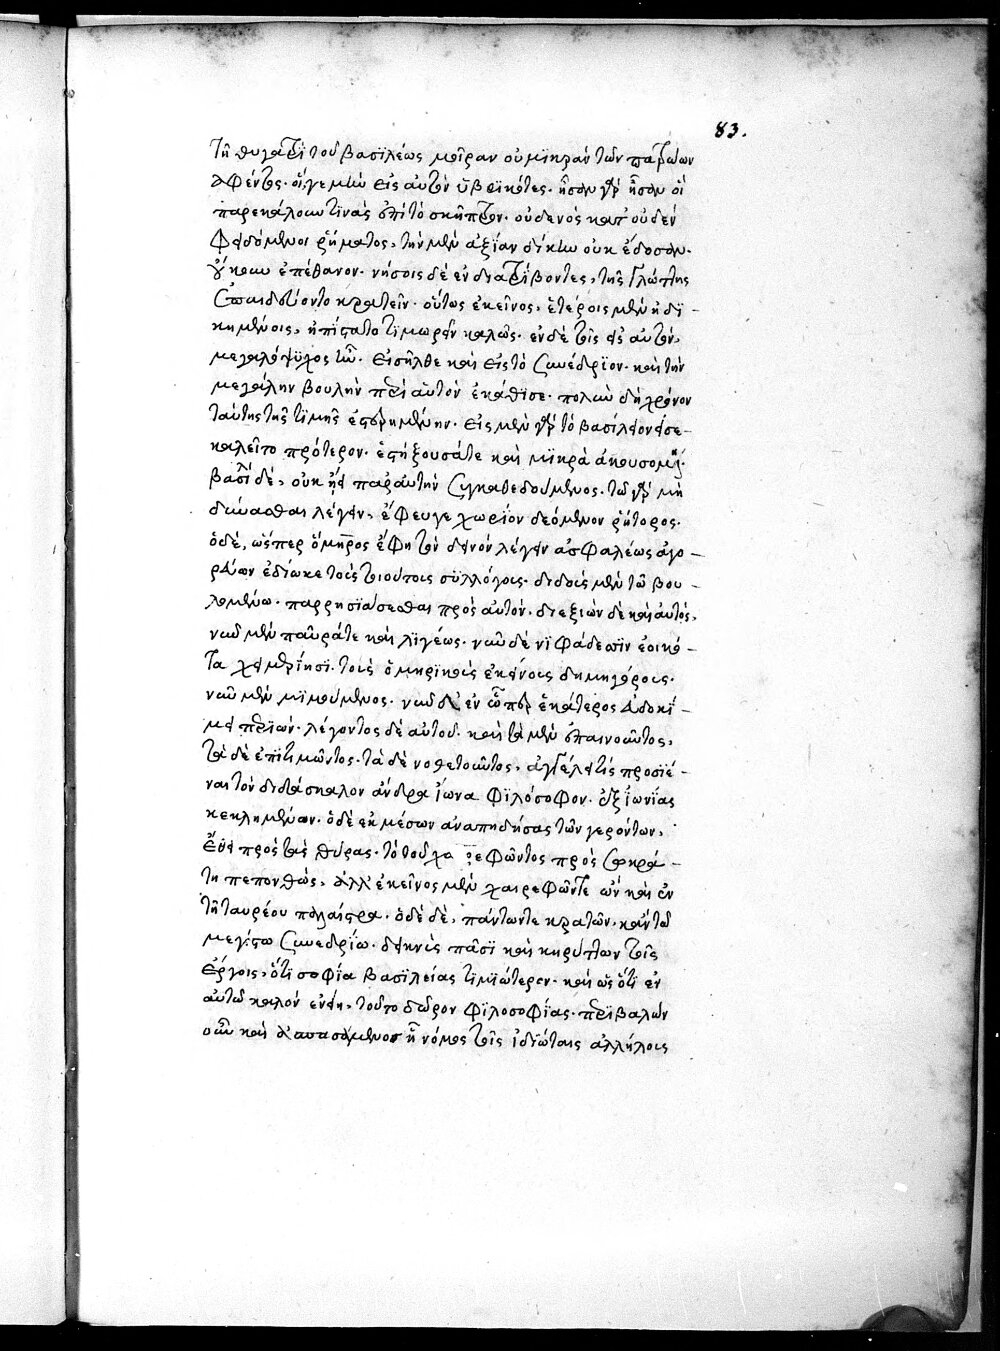 83.
τῇ θυγατρὶ τοῦ βασιλέως μοῖραν οὐ μικρὰν τῶν πατρῴων
ἀφέντος. οἵ γε μὴν εἰς αὐτὸν ὑβρικότες. ἦσαν γὰρ ἦσαν οἳ
παρεκάλουν τινὰς ἐπὶ τὸ σκῆπτρον. οὐδενὸς κατ' οὐδὲν
φειδόμενοι ῥήματος, τὴν μὲν ἀξίαν δίκην οὐκ ἔδοσαν.
οὔκουν ἐπέθανον. νήσοις δὲ ἐνδιατρίβοντες, τῆς γλώττης
ἐπαιδεύοντο κρατεῖν. οὕτως ἐκεῖνος, ἑτέροις μὲν ἠδι-
κημένοις, ἠπίστατο τιμωρεῖν καλῶς. ἐν δὲ τοῖς εἰς αὐτόν,
μεγαλόψυχος ἦν. εἰσῆλθε καὶ εἰς τὸ συνέδριον. καὶ τὴν
μεγάλην βουλὴν περὶ αὑτὸν ἐκάθισε. πολὺν δὴ χρόνον
ταύτης τῆς τιμῆς ἐστερημένην. εἰς μὲν γὰρ τὸ βασίλειον εἰσε-
καλεῖτο πρότερον. ἑστήξουσά τε καὶ μικρὰ ἀκουσομένη.
βασιλεὺς δὲ, οὐκ ᾔει παρ' αὐτὴν συγκαθεδούμενος. τῷ γὰρ μὴ
δύνασθαι λέγειν, ἔφευγε χωρίον δεόμενον ῥήτορος.
ὁ δὲ, ὥσπερ ὅμηρος ἔφη τὸν δεινὸν λέγειν ἀσφαλέως ἀγο-
ρεύων ἐδίωκε τοὺς τοιούτους συλλόγους. διδοὺς μὲν τῷ βου-
λομένῳ. παρρησιάσεσθαι πρὸς αὐτόν. διεξιὼν δὲ καὶ αὐτός,
νῦν μὲν παῦρά τε καὶ λιγέως. νῦν δὲ νιφάδεσσιν ἐοικό-
τα χειμερίῃσι. τοὺς ὁμηρικοὺς ἐκείνους δημηγόρους.
νῦν μὲν μιμούμενος. νῦν δ' ἐν ᾧπερ ἑκάτερος εὐδοκί-
μει περιιών. λέγοντος δὲ αὐτοῦ. καὶ τὰ μὲν ἐπαινοῦντος,
τὰ δὲ ἐπιτιμῶντος. τὰ δὲ νουθετοῦντος, ἀγγέλλει τὶς προσιέ-
ναι τὸν διδάσκαλον ἄνδρα ἴωνα φιλόσοφον. ἐξ ἰωνίας
κεκλημένον. ὁ δὲ ἐκ μέσων ἀναπηδήσας τῶν γερόντων,
ἔθει πρὸς τὰς θύρας. τὸ τοῦ χαιρεφῶντος πρὸς σωκρά-
τη πεπονθώς, ἀλλ' ἐκεῖνος μὲν χαιρεφῶν τε ὢν καὶ ἐν
τῇ ταυρέου παλαίστρᾳ. ὁ δὲ δὲ, πάντων τε κρατῶν, κἀν τῷ
μεγίστῳ συνεδρίῳ. δεικνὺς πᾶσι καὶ κηρύττων τοῖς
ἔργοις, ὅτι σοφία βασιλείας τιμιώτερον. καὶ ὡς ὅτι ἐν
αὐτῷ καλὸν ἐνείη, τοῦτο δῶρον φιλοσοφίας. περιβαλὼν
οὖν καὶ ἀσπασόμενος ᾗ νόμος τοῖς ἰδιώταις ἀλλήλους